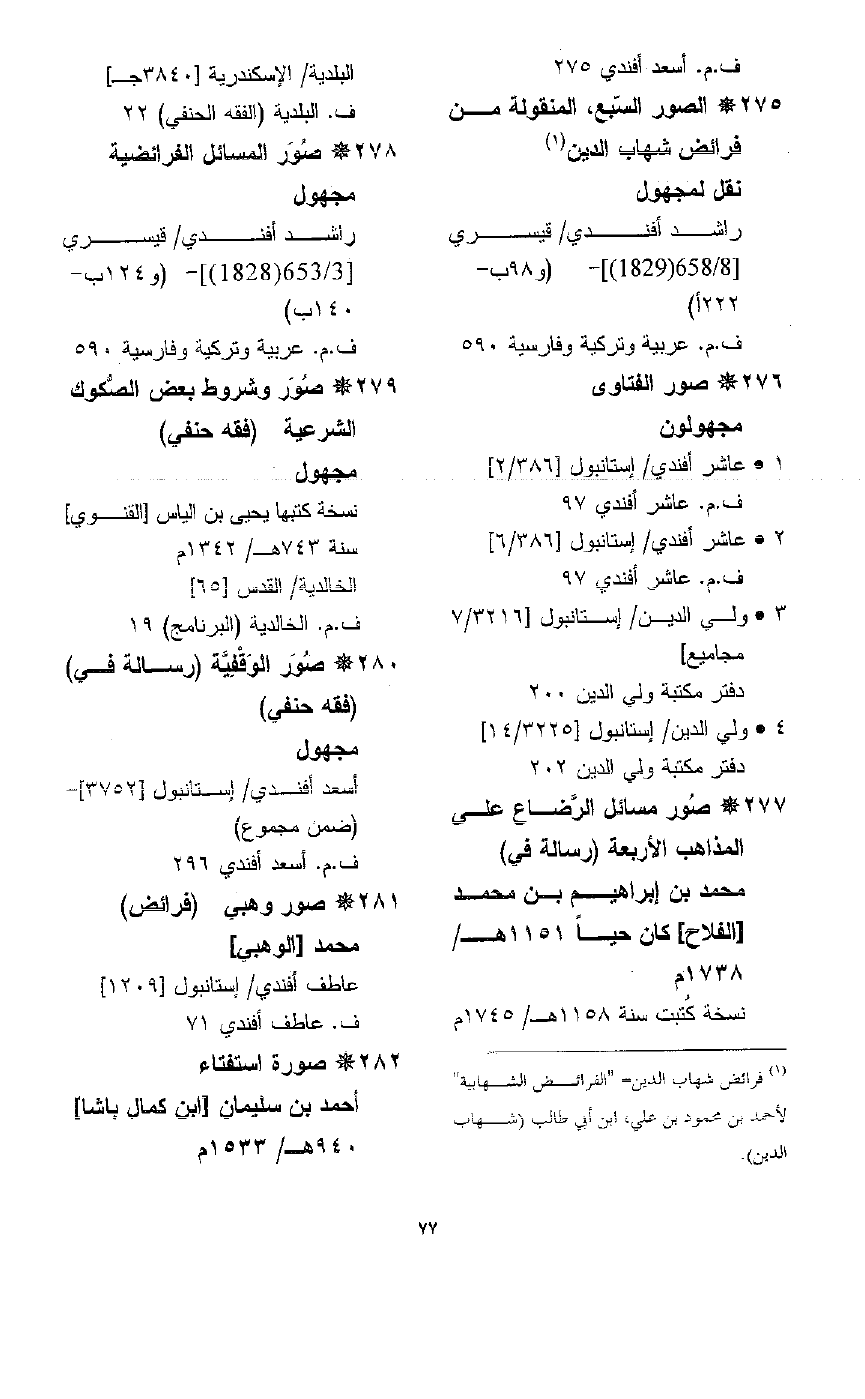 ف.م. أسعد أفندي ٢٧٥
٢٧٥❋ الصور السّبع، المنقولة مـــن
فرائض شهاب الدين(١)
نقل لمجهول
راشــد أفنــدي/ قيســري
[658/8(1829)]- (و٩٨ب-
٢٢٢أ)
ف.م. عربية وتركية وفارسية ٥٩٠
٢٧٦❋ صور الفتاوى
مجهولون
١ • عاشر أفندي/ إستانبول [٢/٣٨٦]
ف.م. عاشر أفندي ٩٧
٢ • عاشر أفندي/ إستانبول [٦/٣٨٦]
ف.م. عاشر أفندي ٩٧
٣ • ولــي الديــن/ إستانبول [٧/٣٢١٦
مجاميع]
دفتر مكتبة ولي الدين ٢٠٠
٤ • ولي الدين/ إستانبول [١٤/٣٢٢٥]
دفتر مكتبة ولي الدين ٢٠٢
٢٧٧❋ صُور مسائل الرَّضــاع علــى
المذاهب الأربعة (رسالة في)
محمد بن إبراهيــم بــن محمــد
[الفلاح] كان حيــاً ١١٥١هــ/
١٧٣٨م
نسخة كُتبت سنة ١١٥٨هـ/ ١٧٤٥م
(١) فرائض شهاب الدين= "الفرائــض الشــهابية"
لأحمد بن محمود بن علي، ابن أبي طالب (شــهاب
الدين).
البلدية/ الإسكندرية [٣٨٤٠جـ]
ف. البلدية (الفقه الحنفي) ٢٢
٢٧٨❋ صُوَر المسائل الفرائضية
مجهول
راشــد أفنــدي/ قيســري
[653/3(1828)]- (و١٢٤ب-
١٤٠ب)
ف.م. عربية وتركية وفارسية ٥٩٠
٢٧٩❋ صُوَر وشروط بعض الصُّكوك
الشرعية (فقه حنفي)
مجهول
نسخة كتبها يحيى بن الياس [القنــوي]
سنة ٧٤٣هـ/ ١٣٤٢م
الخالدية/ القدس [٦٥]
ف.م. الخالدية (البرنامج) ١٩
٢٨٠❋ صُوَر الوَقْفِيَّة (رســالة فــي)
(فقه حنفي)
مجهول
أسعد أفنــدي/ إستانبول [٣٧٥٢]-
(ضمن مجموع)
ف.م. أسعد أفندي ٢٩٦
٢٨١❋ صور وهبي (فرائض)
محمد [الوهبي]
عاطف أفندي/ إستانبول [١٢٠٩]
ف. عاطف أفندي ٧١
٢٨٢❋ صورة استفتاء
أحمد بن سليمان [ابن كمال باشا]
٩٤٠هـ/ ١٥٣٣م
٧٧